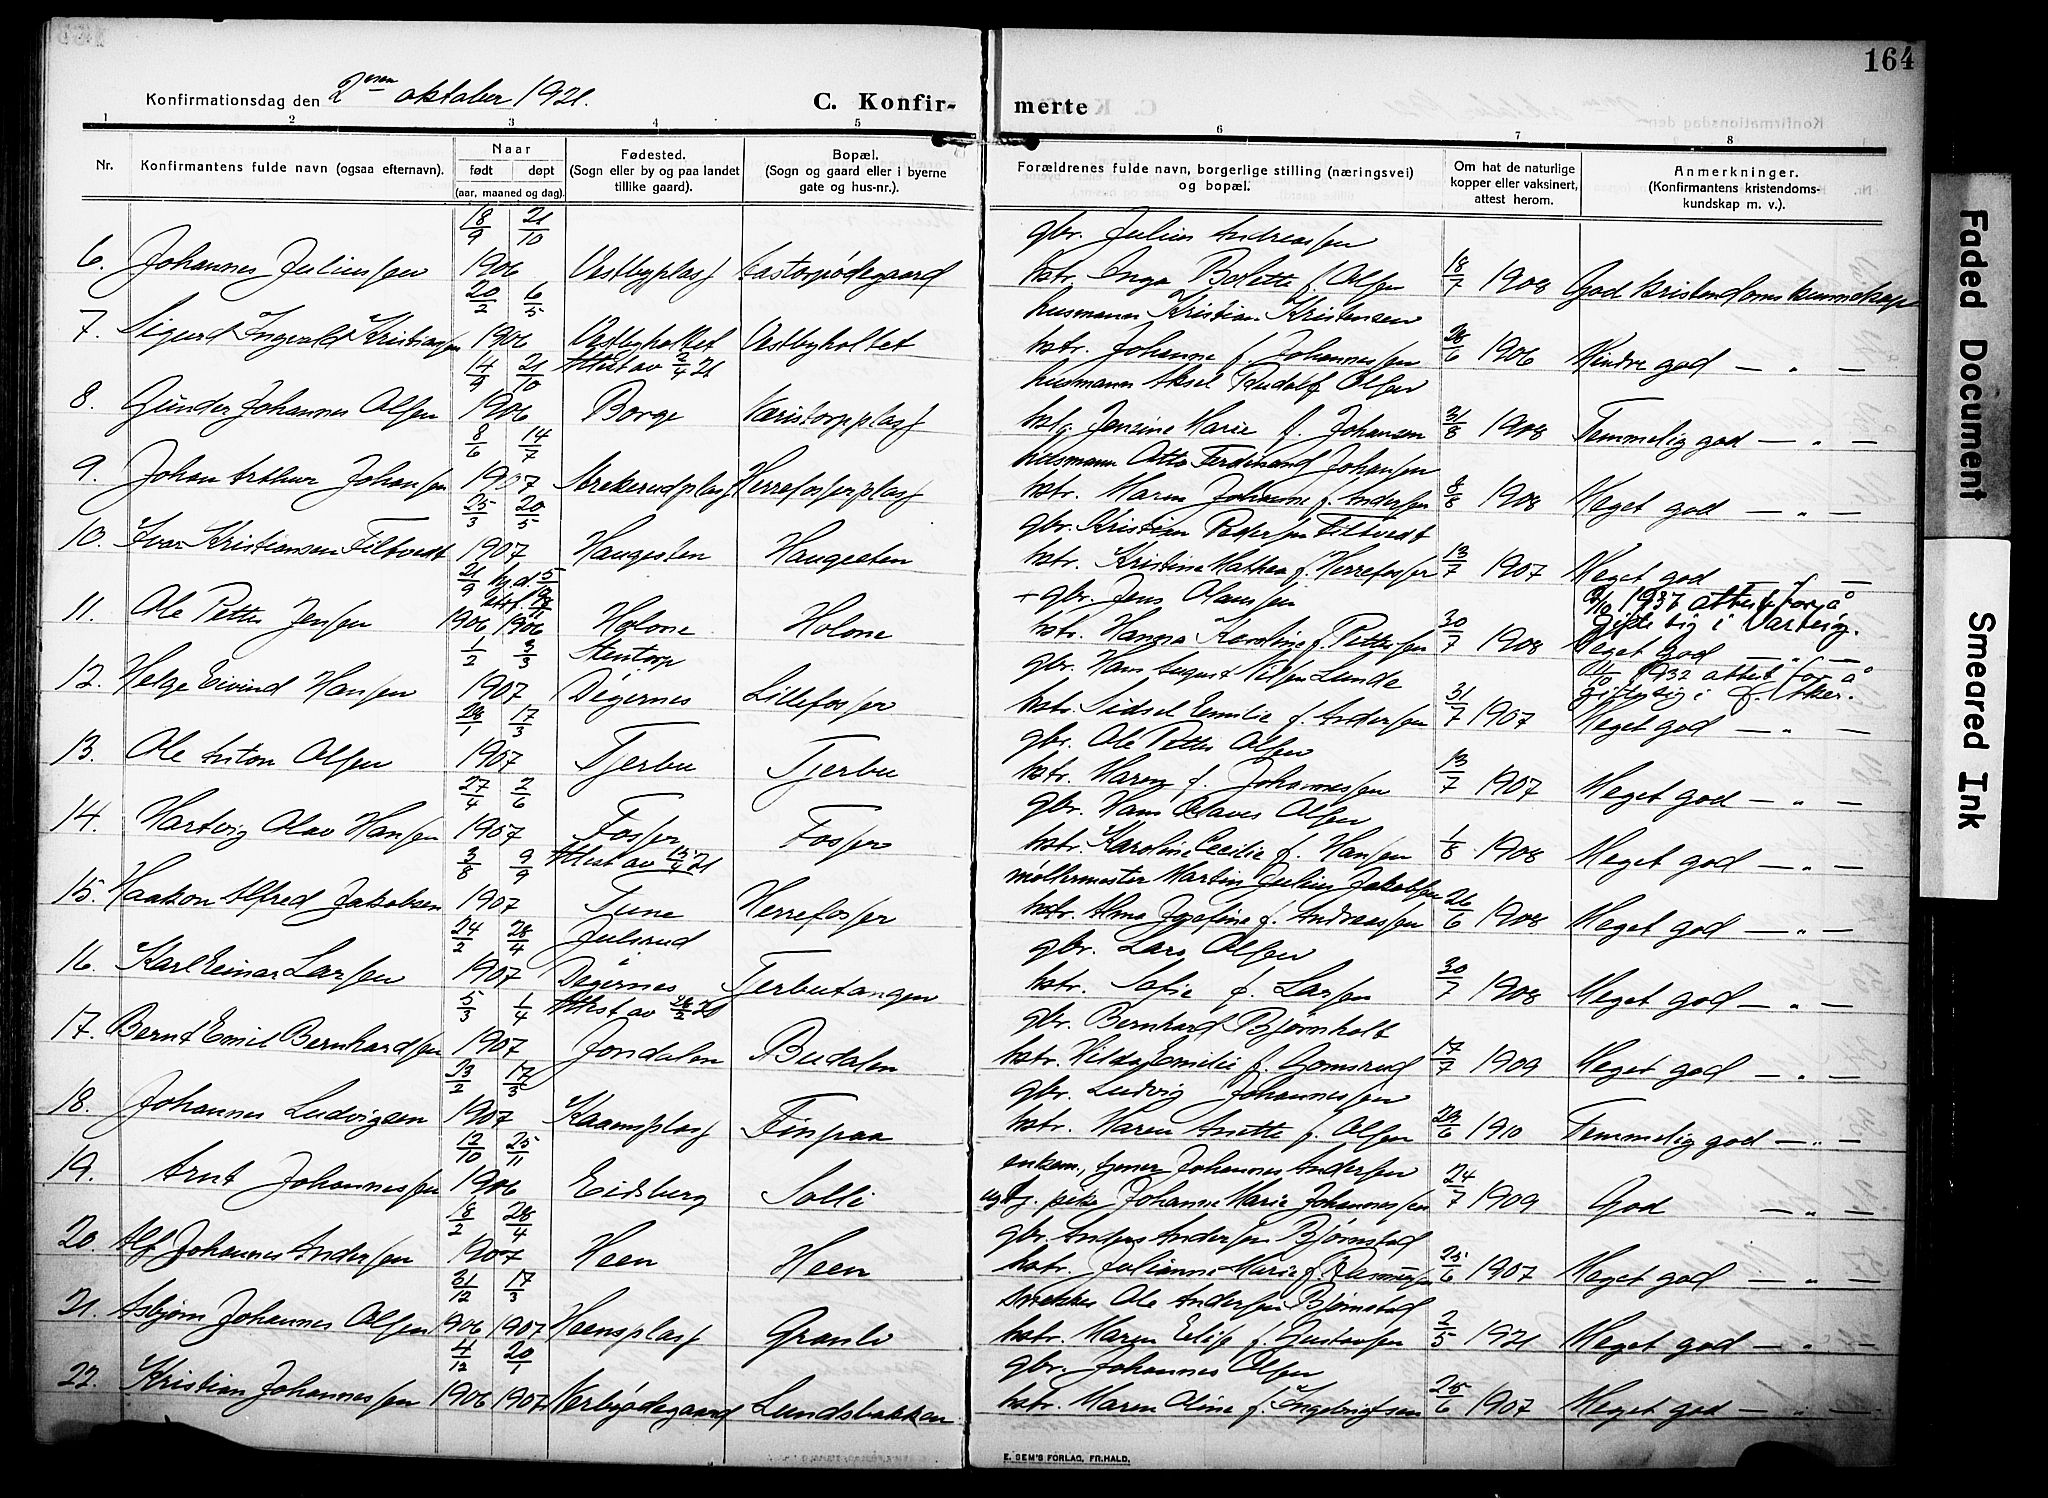 164
Konfirmationsdag den 2den oktober 1921.
C. Konfir- merte
1 2 3 4 5 6 7 8
Nr. Konfirmantens fulde navn (ogsaa efternavn). Naar født døpt (aar, maaned og dag). Fødested. (Sogn eller by og paa landet tillike gaard). Bopæl. (Sogn og gaard eller i byerne gate og hus-nr.). Forældrenes fulde navn, borgerlige stilling (næringsvei) og bopæl. Om hat de naturlige kopper eller vaksinert, attest herom. Anmerkninger. (Konfirmantens kristendoms-kundskap m. v.).
18/9 21/10 gbr. Julius Andreassen
6. Johannes Juliussen 1906 Vestbyplass Kastorpødegaard hstr. Inga Bolette f. Olsen 18/7 1908 God kristendomskunnskap
20/2 6/5 husmann Kristian Kristensen
7. Sigurd Ingvald Kristiansen 1906 Vestbyholtet Vestbyholtet hstr. Johanne f. Johannessen 28/6 1906 Mindre god — " —
14/9 21/10 Attest av 2/4 21 husmann Aksel Rudolf Olsen
8. Gunder Johannes Olsen 1906 Borge Karistorpplass hstr. Jensine Marie f. Johansen 31/8 1908 Temmelig god — " —
8/6 14/7 husmann Otto Ferdinand Johansen
9. Johan Arthur Johansen 1907 Arekerudplass Herrefosserplass hstr. Maren Johanne f. Andersen 8/8 1908 Meget god — " —
25/3 20/5 gbr. Kristian Pedersen Filtvedt
10. Ivar Kristiansen Filtvedt 1907 Haugesten Haugesten hstr. Kristine Mathea f. Herrefosser 13/7 1907 Meget god — " —
21/9 gbr. Jens Olaussen 1937 attest for å
11. Ole Petter Jensen 1906 1906 Holone Holone hstr. Hanna Karoline f. Pettersen 30/7 1908 gifte sig i Varteig.
Meget god — " —
1/2 3/3 Stentorp gbr. Hans August Nilsen Lunde 1932 attest for å
12. Helge Eivind Hansen 1907 Degernes Lillefosser hstr. Sidsel Emilie f. Andersen 31/7 1907 gifte sig i V. Aker.
Meget god — " —
28/1 17/3 gbr. Ole Petter Olsen
13. Ole Anton Olsen 1907 Tjerbu Tjerbu hstr. Maren f. Johannessen 13/7 1907 Meget god — " —
27/4 2/6 gbr. Hans Olaves Olsen
14. Hartvig Olav Hansen 1907 Fosser Fosser hstr. Karoline Cecilie f. Hansen 1/8 1908 Meget god — " —
3/8 9/9 Attest av 15/4 21 møllermester Martin Julius Jakobsen
15. Haakon Alfred Jakobsen 1907 Tune Herrefosser hstr. Alma Josefine f. Andreassen 26/6 1908 Meget god — " —
24/2 28/4 Julsrud gbr. Lars Olsen
16. Karl Einar Larsen 1907 Degernes Tjerbutangen hstr. Sofie f. Larsen 30/7 1908 Meget god — " —
5/3 1/4 Attest av 28/2 20 gbr. Bernhard Bjørnholt
17. Bernt Emil Bernhardsen 1907 Jondalen Budalen hstr. Hilda Emelie f. Gomsrud 17/7 1909 Meget god — " —
23/2 17/3 gbr. Ludvig Johannessen
18. Johannes Ludvigsen 1907 Kaaensplass Finpaa hstr. Maren Anette f. Olsen 29/6 1910 Temmelig god — " —
12/10 25/11 enkem., tjener Johannes Andersen
19. Arnt Johannessen 1906 Eidsberg Solli ug tj. pike Johanne Marie Johannessen 24/7 1909 God — " —
18/2 28/4 gbr. Anders Andersen Bjørnstad
20. Alf Johannes Andersen 1907 Heen Heen hstr. Julianne Marie f. Rasmussen 25/6 1907 Meget god — " —
31/12 17/3 snekker Ole Andersen Bjørnstad
21. Asbjørn Johannes Olsen 1906 1907 Heensplass Granli hstr. Maren Elise f. Gustavsen 2/5 1921 Meget god — " —
4/12 20/1 gbr. Johannes Olsen
22. Kristian Johannessen 1906 1907 Nerbyødegaard Lundsbakken hstr. Maren Oline f. Ingebrigtsen 25/6 1907 Meget god — " —
E. SEM'S FORLAG, FR.HALD.
Faded Document
Smeared Ink